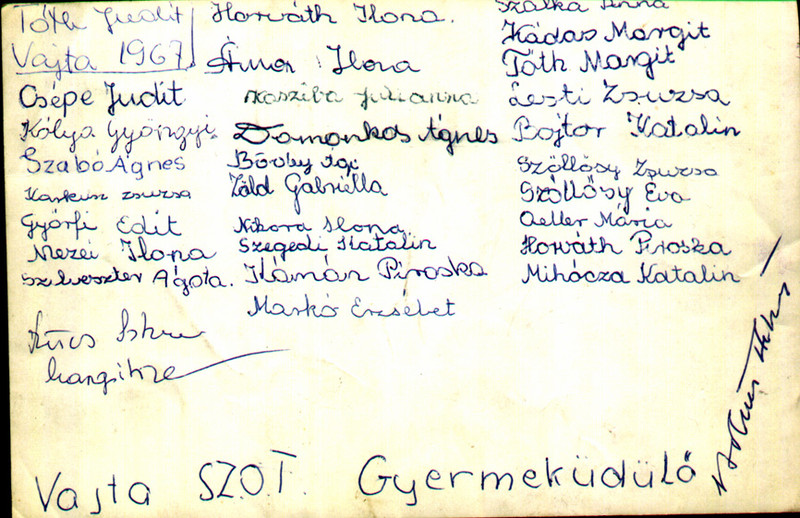 Tóth Judit
Vajta 1967
Csépe Judit
Kólya Gyöngyi
Szabó Ágnes
Zsuzsa
Győrfi Edit
Mezei Ilona
Szilveszter Ágota.
Horváth Ilona.
Ilona
Julianna
Domonkos Ágnes
Zöld Gabriella
Nikora Ilona
Szegedi Katalin
Kámán Piroska
Markó Erzsébet
Szalka Anna
Kádas Margit
Tóth Margit
Lesti Zsuzsa
Bojtor Katalin
Szöllősy Zsuzsa
Szöllősy Éva
Oeller Mária
Horváth Piroska
Mihócza Katalin
Vajta SZ.O.T. Gyermeküdülő